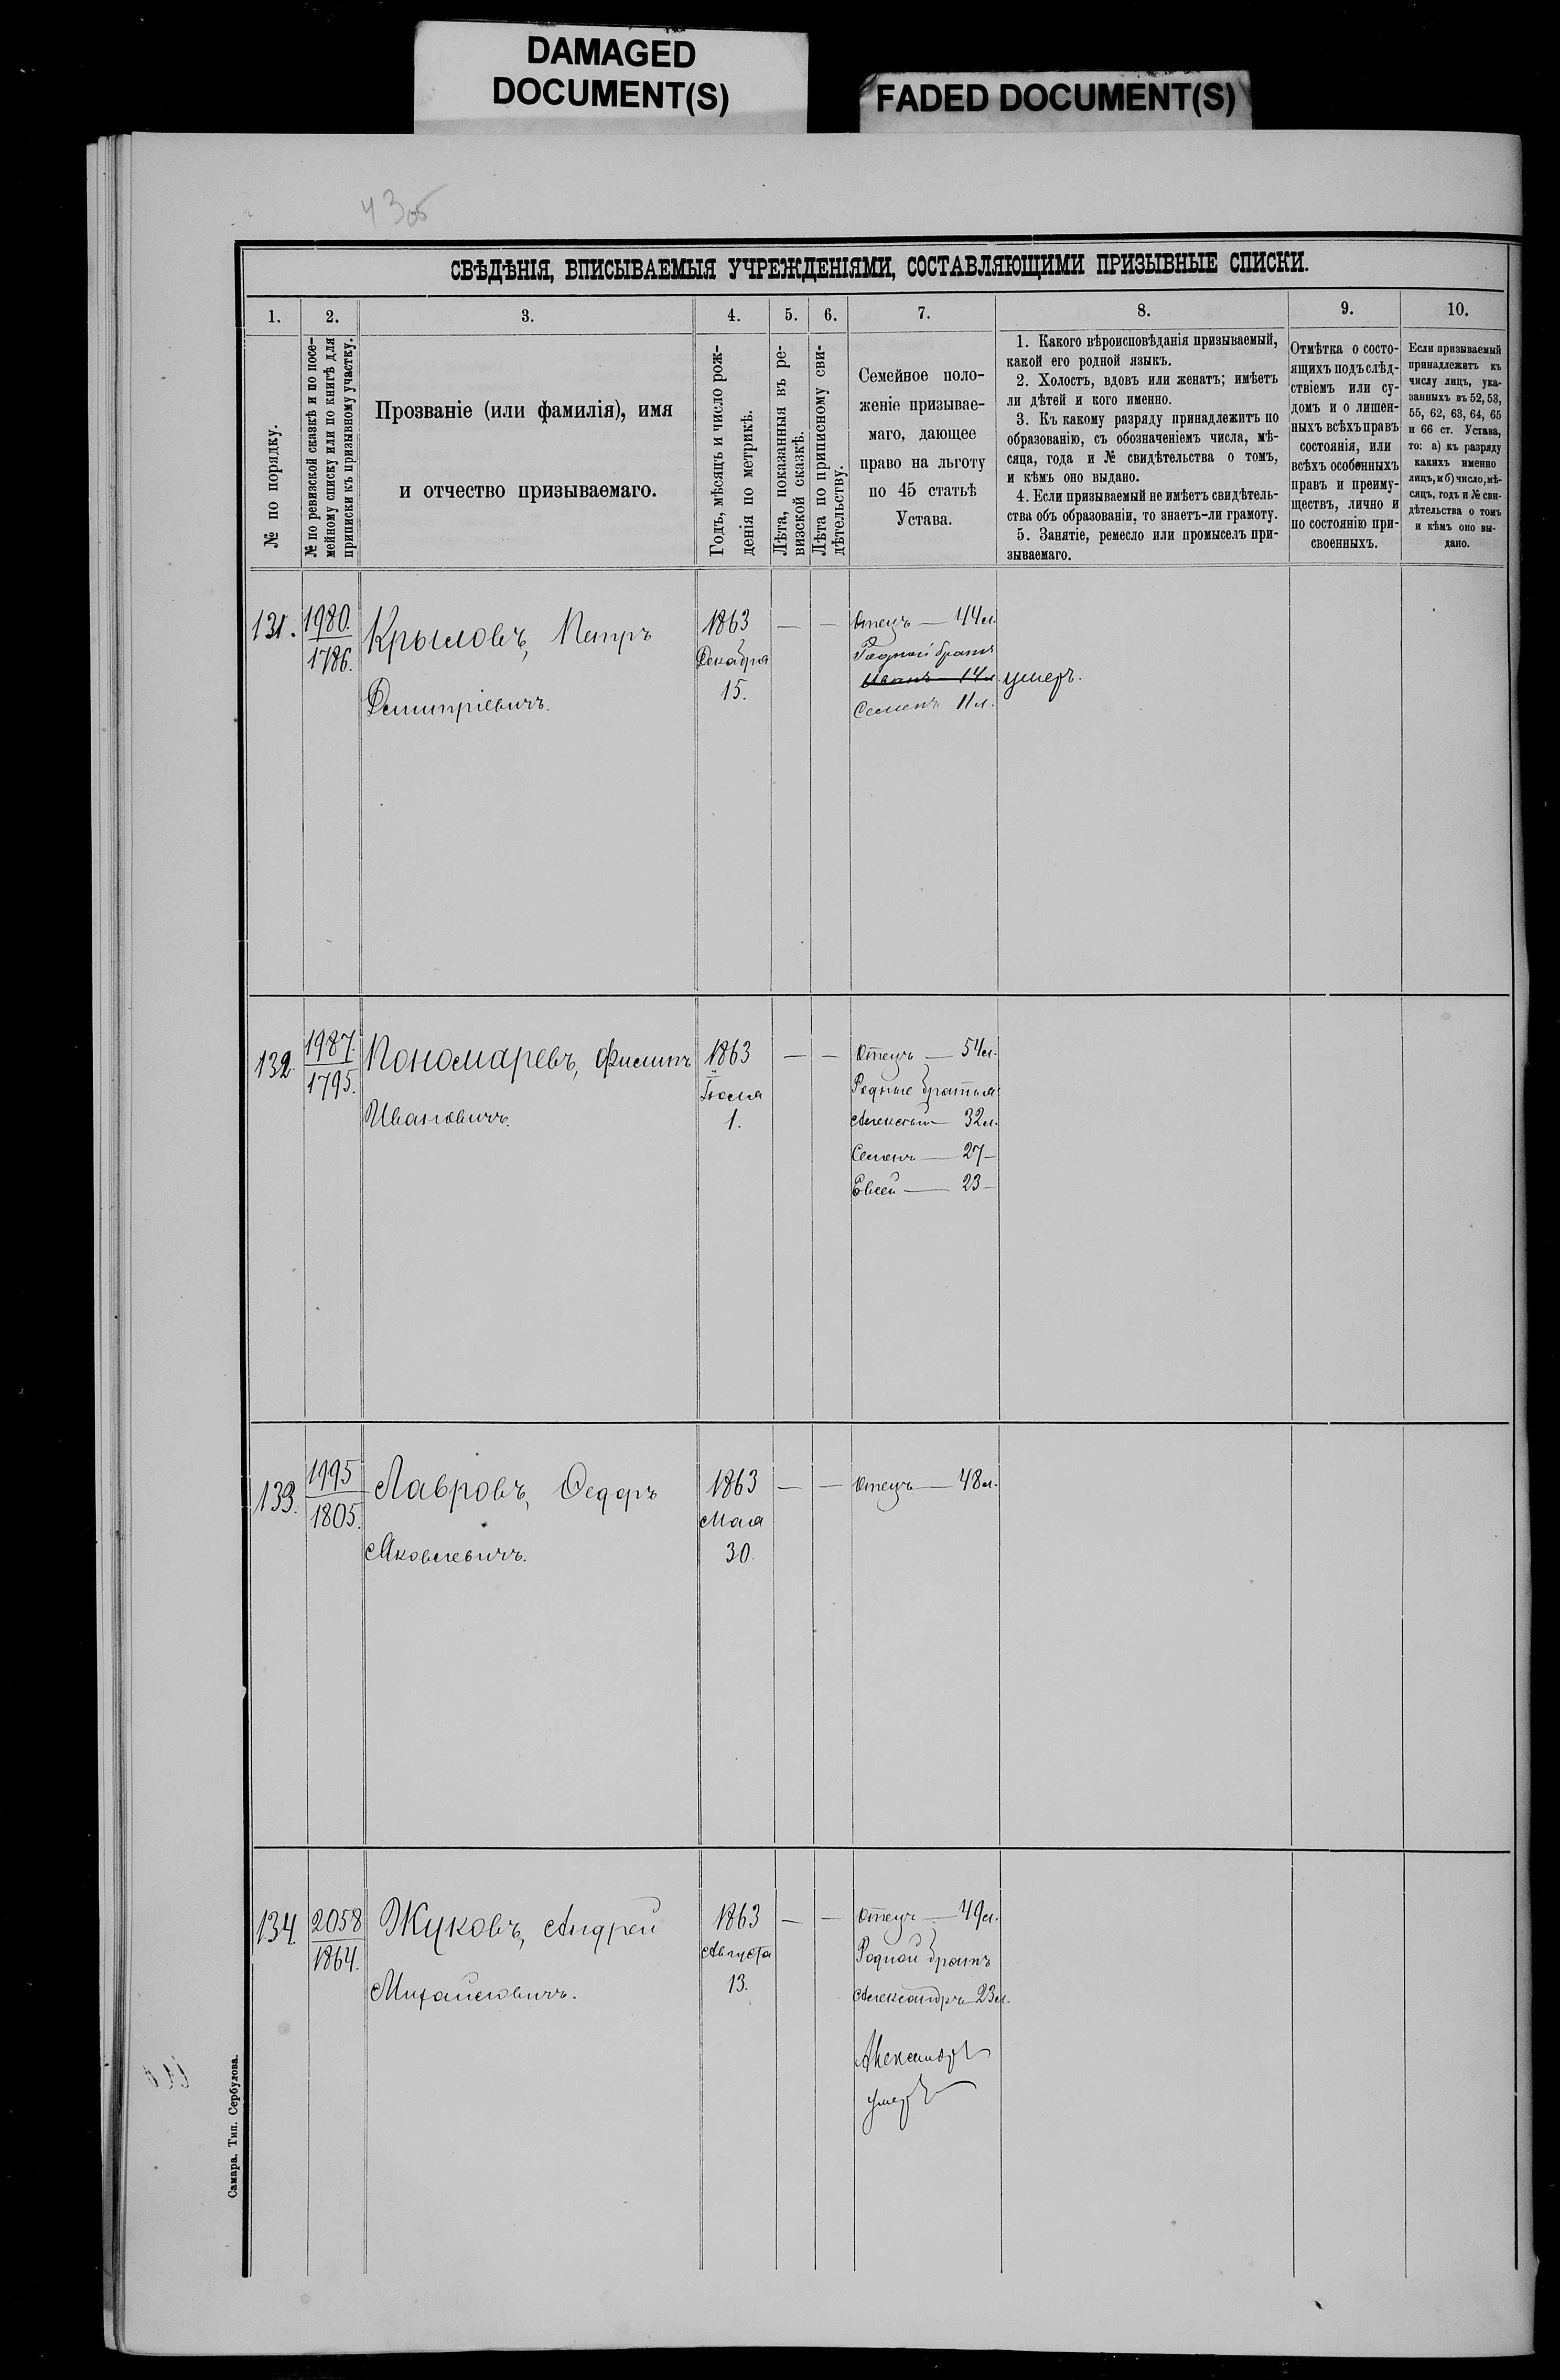 DAMAGED
DOCUMENT(S)
FADED DOCUMENT(S)
43об
СВѢДѢНІЯ, ВПИСЫВАЕМЫЯ УЧРЕЖДЕНІЯМИ, СОСТАВЛЯЮЩИМИ ПРИЗЫВНЫЕ СПИСКИ.
1.
2.
3.
4.
5.
6.
7.
8.
9.
10.
№ по порядку.
№ по ревизской сказкѣ и по посе-
мейному списку или по книгѣ для
приписки къ призывному участку.
Прозваніе (или фамилія), имя
и отчество призываемаго.
Годъ, мѣсяцъ и число рож-
денія по метрикѣ.
Лѣта, показанныя въ ре-
визской сказкѣ.
Лѣта по приписному сви-
дѣтельству.
Семейное поло-
женіе призывае-
маго, дающее
право на льготу
по 45 статьѣ
Устава.
1. Какого вѣроисповѣданія призываемый,
какой его родной языкъ.
2. Холостъ, вдовъ или женатъ; имѣетъ
ли дѣтей и кого именно.
3. Къ какому разряду принадлежитъ по
образованію, съ обозначеніемъ числа, мѣ-
сяца, года и № свидѣтельства о томъ,
и кѣмъ оно выдано.
4. Если призываемый не имѣетъ свидѣтель-
ства объ образованіи, то знаетъ-ли грамоту.
5. Занятіе, ремесло или промыселъ при-
зываемаго.
Отмѣтка о состо-
ящихъ подъ слѣд-
ствіемъ или су-
домъ и о лишен-
ныхъ всѣхъ правъ
состоянія, или
всѣхъ особенныхъ
правъ и преиму-
ществъ, лично и
по состоянію при-
своенныхъ.
Если призываемый
принадлежитъ къ
числу лицъ, ука-
занныхъ въ 52, 53,
55, 62, 63, 64, 65
и 66 ст. Устава,
то: а) къ разряду
какихъ именно
лицъ, и б) число, мѣ-
сяцъ, годъ и № сви-
дѣтельства о томъ
и кѣмъ оно вы-
дано.
131.
1980.
1786.
Крыловъ, Петръ
Димитріевичъ.
1863
Декабря
15.
—
—
Отецъ — 44 л.
Родной братъ
Иванъ — 14 л. умеръ.
Семенъ 11 л.
132.
1987.
1795.
Пономаревъ, Филипъ
Ивановичъ.
1863
Іюля
1.
—
—
Отецъ — 54 л.
Родные братья
Алексѣй — 32 л.
Семенъ — 27 —
Евсей — 23 —
133.
1995
1805.
Лавровъ, Ѳедоръ
Яковлевичъ.
1863
Мая
30.
—
—
Отецъ — 48 л.
134.
2058
1864.
Жуковъ, Андрей
Михайловичъ.
1863
Августа
13.
—
—
Отецъ — 49 л.
Родной братъ
Александръ — 23 л.
Александръ
умеръ
Самара. Тип. Сербулова.